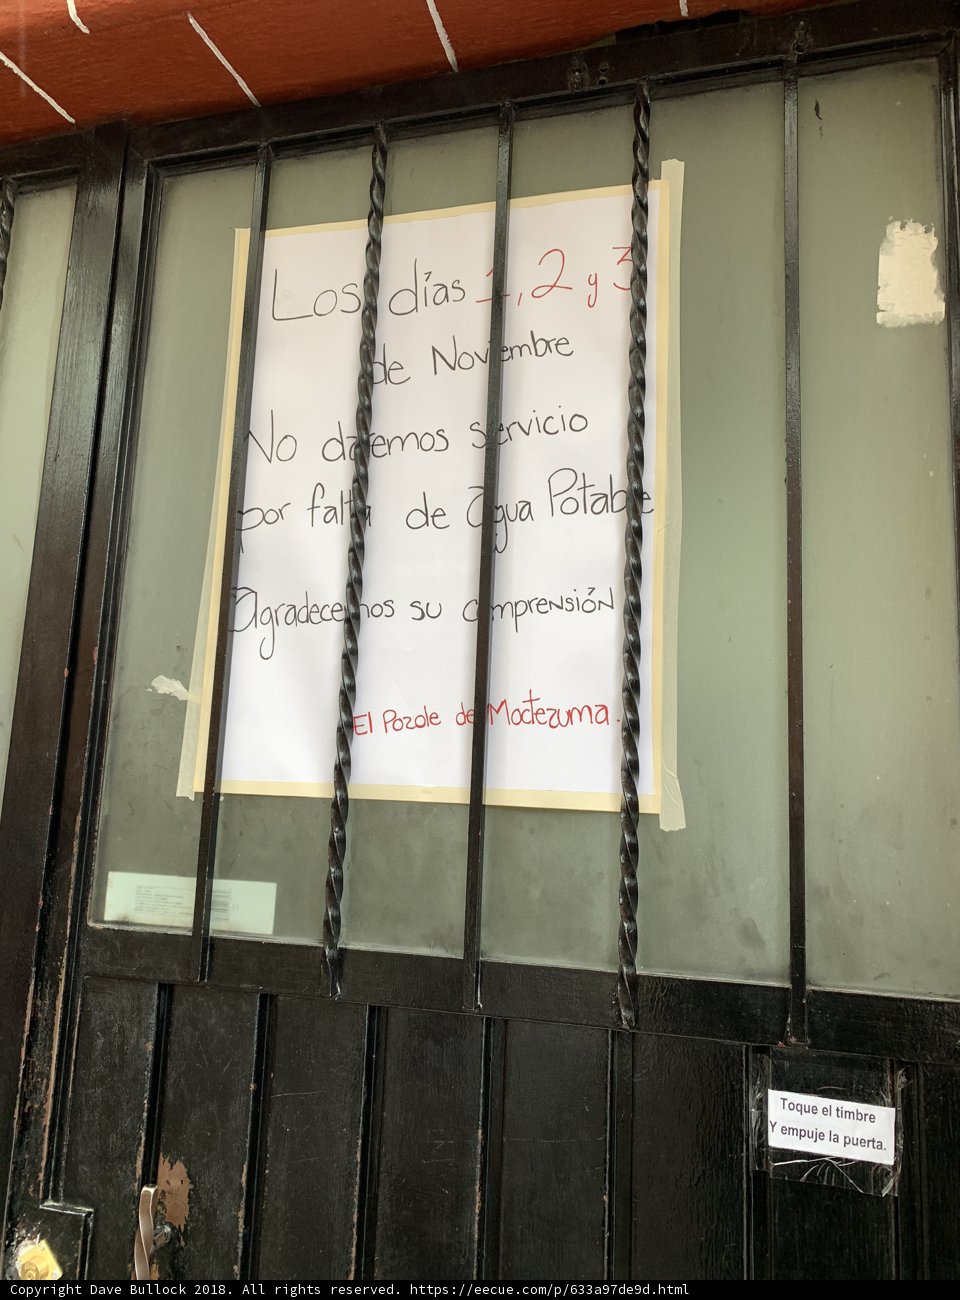 Los días 1, 2 y 3
de Noviembre
No daremos servicio
por falta de Agua Potable
Agradecemos su comprensión
El Pozole de Moctezuma.
Toque el timbre
Y empuje la puerta.
Copyright Dave Bullock 2018. All rights reserved. https://eecue.com/p/633a97de9d.html